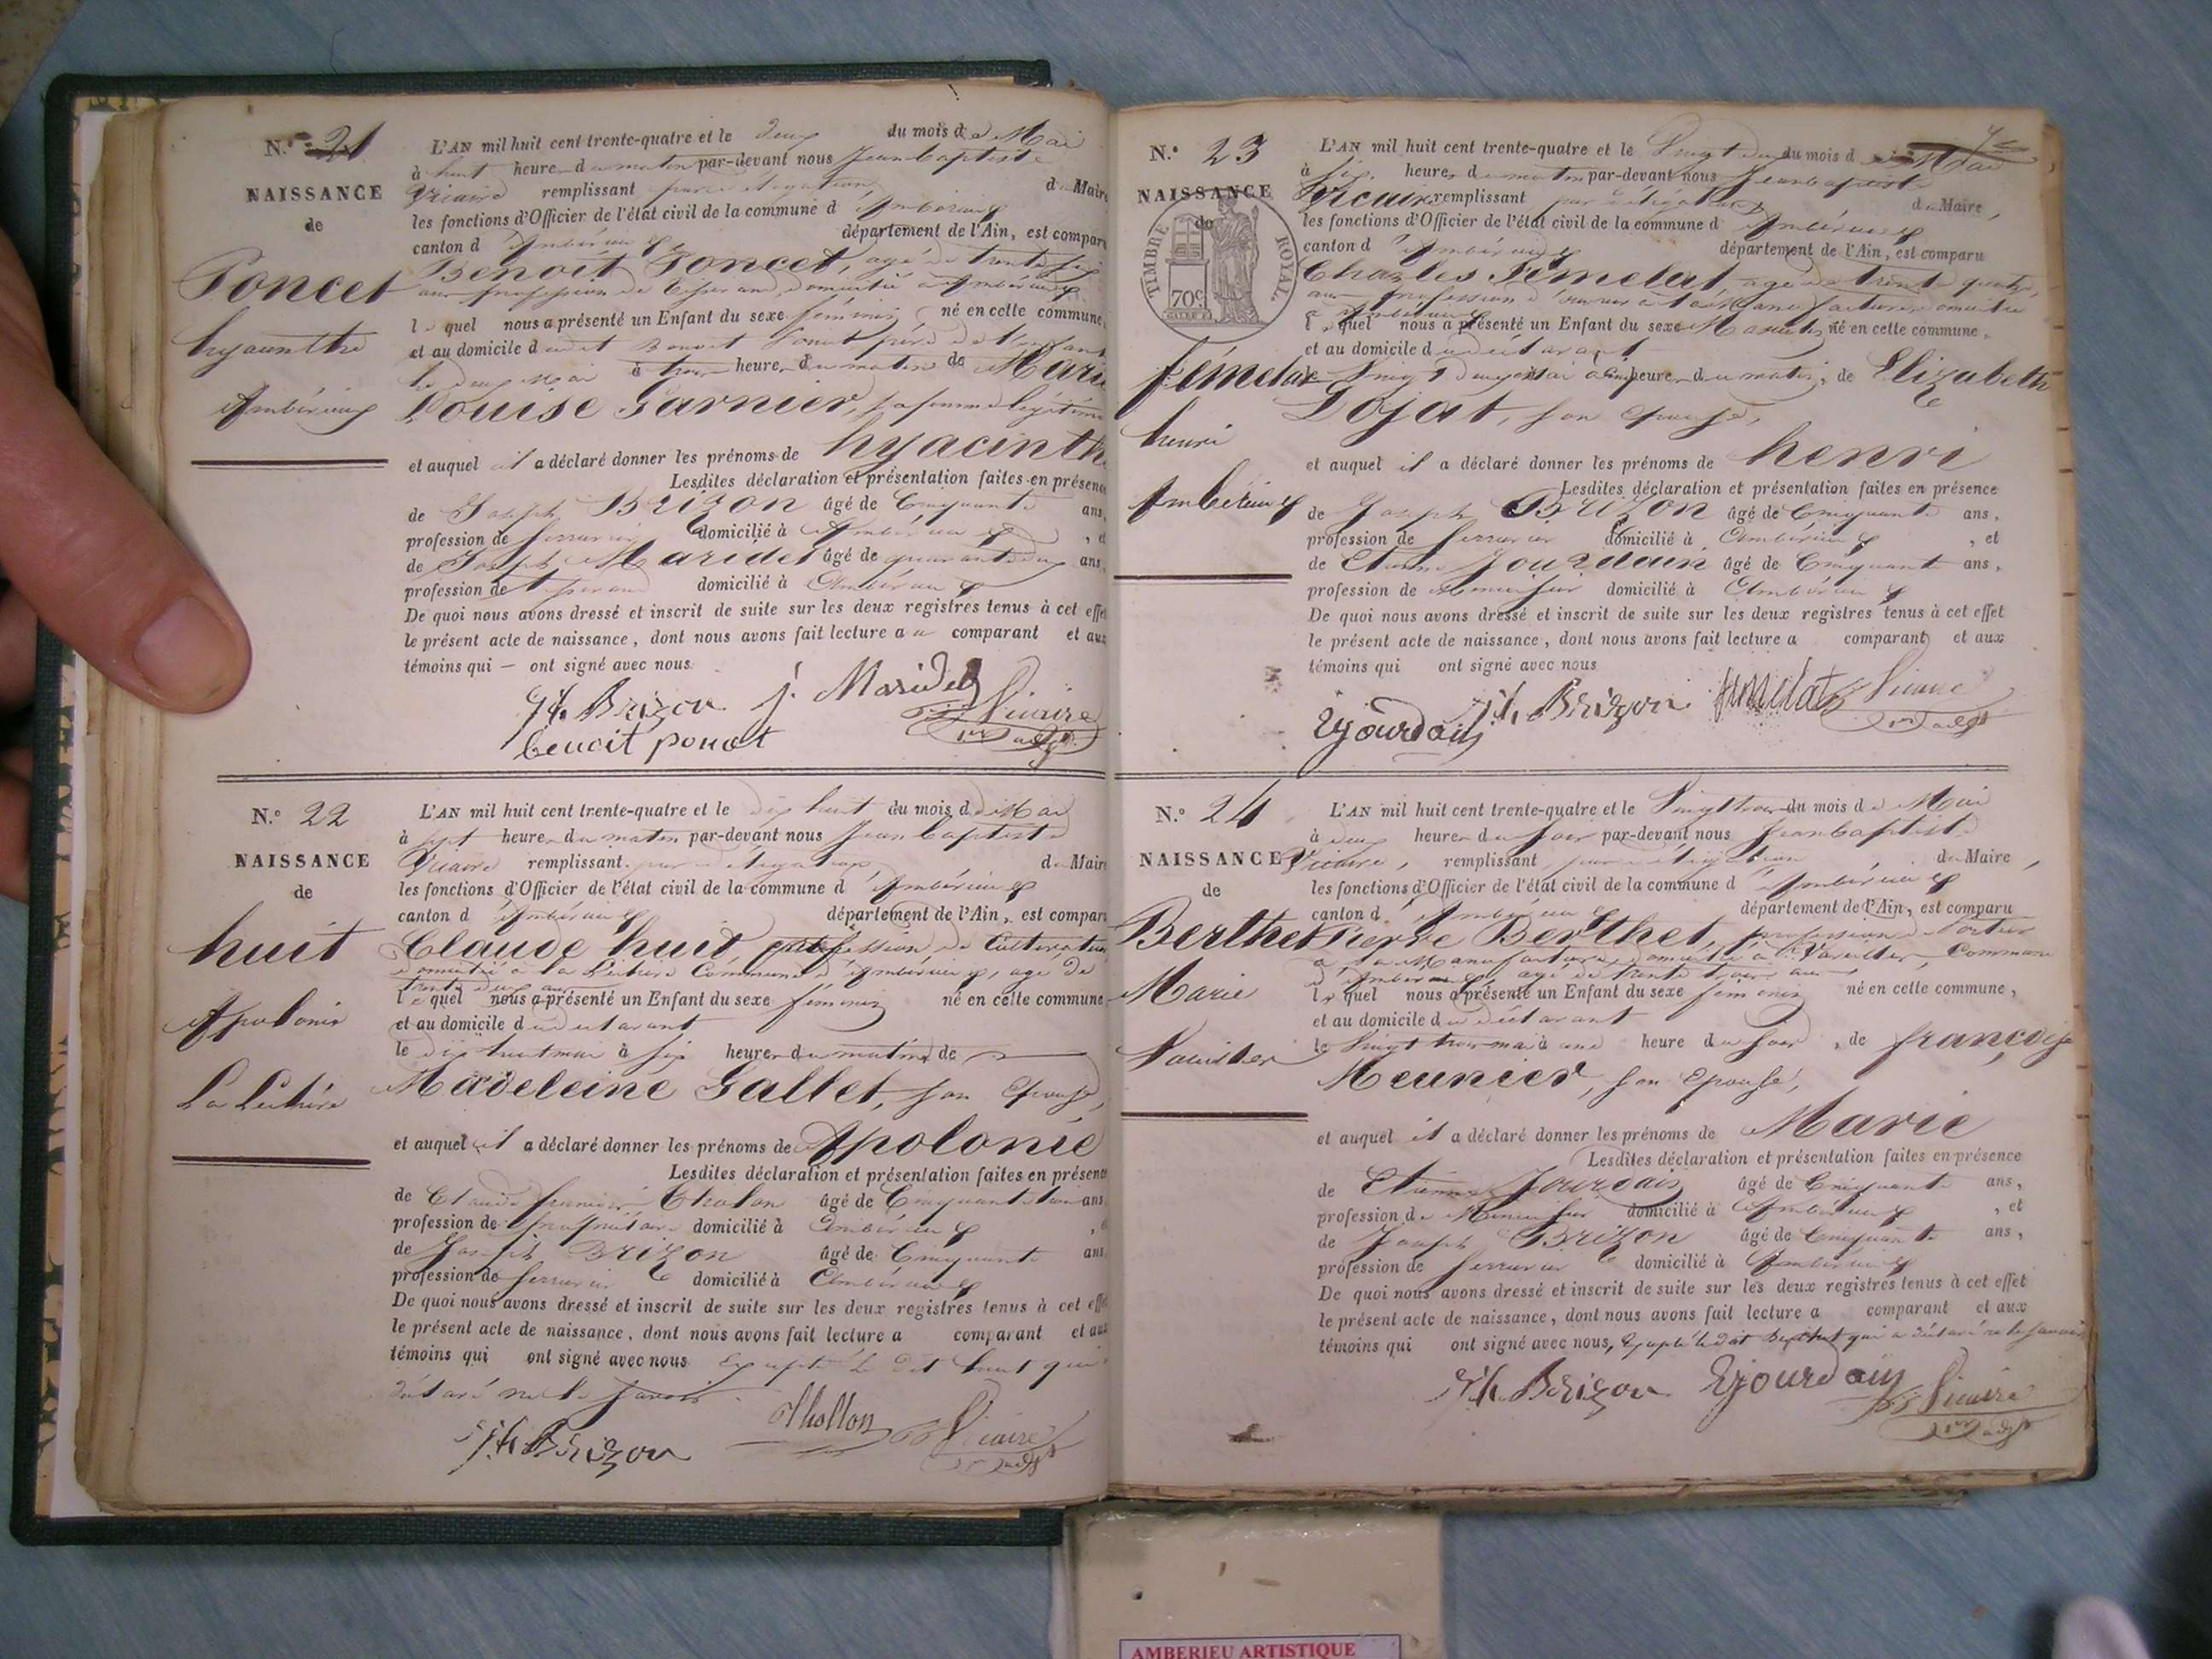 N.º 21
NAISSANCE
de
Poncet
hyacinthe
Ambérieux
L'AN mil huit cent trente-quatre et le deux du mois de Mai
à huit heures du matin par-devant nous Jean baptiste
Vicaire remplissant par délégation du Maire
les fonctions d'Officier de l'état civil de la commune d'Ambérieux
canton d'Ambérieux département de l'Ain, est comparu
Benoît Poncet, agé de trente six
ans profession de tisserand, domicilié à Ambérieux
lequel nous a présenté un Enfant du sexe féminin né en cette commune,
et au domicile dudit Benoit Poncet père de l'enfant
le deux Mai à trois heures du matin de Marie
Louise Garnier, sa femme légitime
et auquel il a déclaré donner les prénoms de hyacinthe
Lesdites déclaration et présentation faites en présence
de Joseph Brizon âgé de Cinquante ans,
profession de serrurier domicilié à Ambérieux, et
de Joseph Maridet âgé de quarante deux ans,
profession de tisserand domicilié à Ambérieux
De quoi nous avons dressé et inscrit de suite sur les deux registres tenus à cet effet
le présent acte de naissance, dont nous avons fait lecture au comparant et aux
témoins qui — ont signé avec nous
Jh. Brizon j. Maridet Vicaire
benoit poncet
N.º 22
NAISSANCE
de
huit
Apolonie
La Léchère
L'AN mil huit cent trente-quatre et le dix huit du mois de Mai
à sept heures du matin par-devant nous Jean baptiste
Vicaire remplissant par délégation du Maire
les fonctions d'Officier de l'état civil de la commune d'Ambérieux
canton d'Ambérieux département de l'Ain, est comparu
Claude huit profession de Cultivateur
domicilié à la Léchère Commune d'Ambérieux, agé de
trente deux ans
lequel nous a présenté un Enfant du sexe féminin né en cette commune
et au domicile du déclarant
le dix huit mai à six heures du matin, de
Madeleine Gallet, son Epouse,
et auquel il a déclaré donner les prénoms de Apolonie
Lesdites déclaration et présentation faites en présence
de Claude françois Thollon âgé de Cinquante trois ans
profession de propriétaire domicilié à Ambérieux
de Joseph Brizon âgé de Cinquante ans
profession de serrurier domicilié à Ambérieux
De quoi nous avons dressé et inscrit de suite sur les deux registres tenus à cet effet
le présent acte de naissance, dont nous avons fait lecture a comparant et aux
témoins qui ont signé avec nous Excepté le dit huit qui a
déclaré ne le savoir.
Jh Brizon Thollon Vicaire
N.º 23
NAISSANCE
de
TIMBRE ROYAL.
70c
fémelat
henri
Ambérieux
L'AN mil huit cent trente-quatre et le Vingt deux du mois de Mai
à six heures du matin par-devant nous Jean baptiste
Vicaire remplissant par délégation du Maire,
les fonctions d'Officier de l'état civil de la commune d'Ambérieux
canton d'Ambérieux département de l'Ain, est comparu
Charles Fémelat, agé de trente quatre
ans profession d'ouvrier à la Manufacture domicilié
à Ambérieux
lequel nous a présenté un Enfant du sexe Masculin né en cette commune,
et au domicile du déclarant
le Vingt deux Mai à cinq heures du matin, de Elizabeth
Dojat, son Epouse,
et auquel il a déclaré donner les prénoms de henri
Lesdites déclaration et présentation faites en présence
de Joseph Brizon âgé de Cinquante ans,
profession de serrurier domicilié à Ambérieux, et
de Etienne Jourdain âgé de Cinquante ans,
profession de Menuisier domicilié à Ambérieux
De quoi nous avons dressé et inscrit de suite sur les deux registres tenus à cet effet
le présent acte de naissance, dont nous avons fait lecture a comparant et aux
témoins qui ont signé avec nous
Ejourdain Jh. Brizon femelat Vicaire
N.º 24
NAISSANCE
de
Berthet
Marie
Vareilles
L'AN mil huit cent trente-quatre et le Vingt trois du mois de Mai
à deux heures du soir par-devant nous Jean baptiste
Vicaire, remplissant par délégation du Maire,
les fonctions d'Officier de l'état civil de la commune d'Ambérieux
canton d'Ambérieux département de l'Ain, est comparu
Pierre Berthet, profession de Portier
à la Manufacture, domicilié à Vareilles, Commune
d'Ambérieux, agé de trente trois ans
lequel nous a présenté un Enfant du sexe féminin né en cette commune,
et au domicile du déclarant
le Vingt trois mai à une heure du soir, de françoise
Meunier, son Epouse,
et auquel il a déclaré donner les prénoms de Marie
Lesdites déclaration et présentation faites en présence
de Etienne Jourdain âgé de Cinquante ans,
profession de Menuisier domicilié à Ambérieux, et
de Joseph Brizon âgé de Cinquante ans,
profession de serrurier domicilié à Ambérieux
De quoi nous avons dressé et inscrit de suite sur les deux registres tenus à cet effet
le présent acte de naissance, dont nous avons fait lecture a comparant et aux
témoins qui ont signé avec nous, Excepté le dit Berthet qui a déclaré ne le savoir
Jh. Brizon Ejourdain Vicaire
AMBERIEU ARTISTIQUE